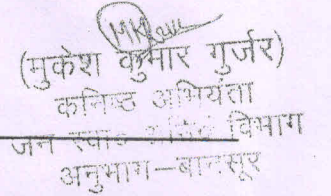 (मुकेश कुमार गुर्जर)
कनिष्ट अभियंता
जन स्वा० अभि० विभाग
अनुभाग–बानसूर